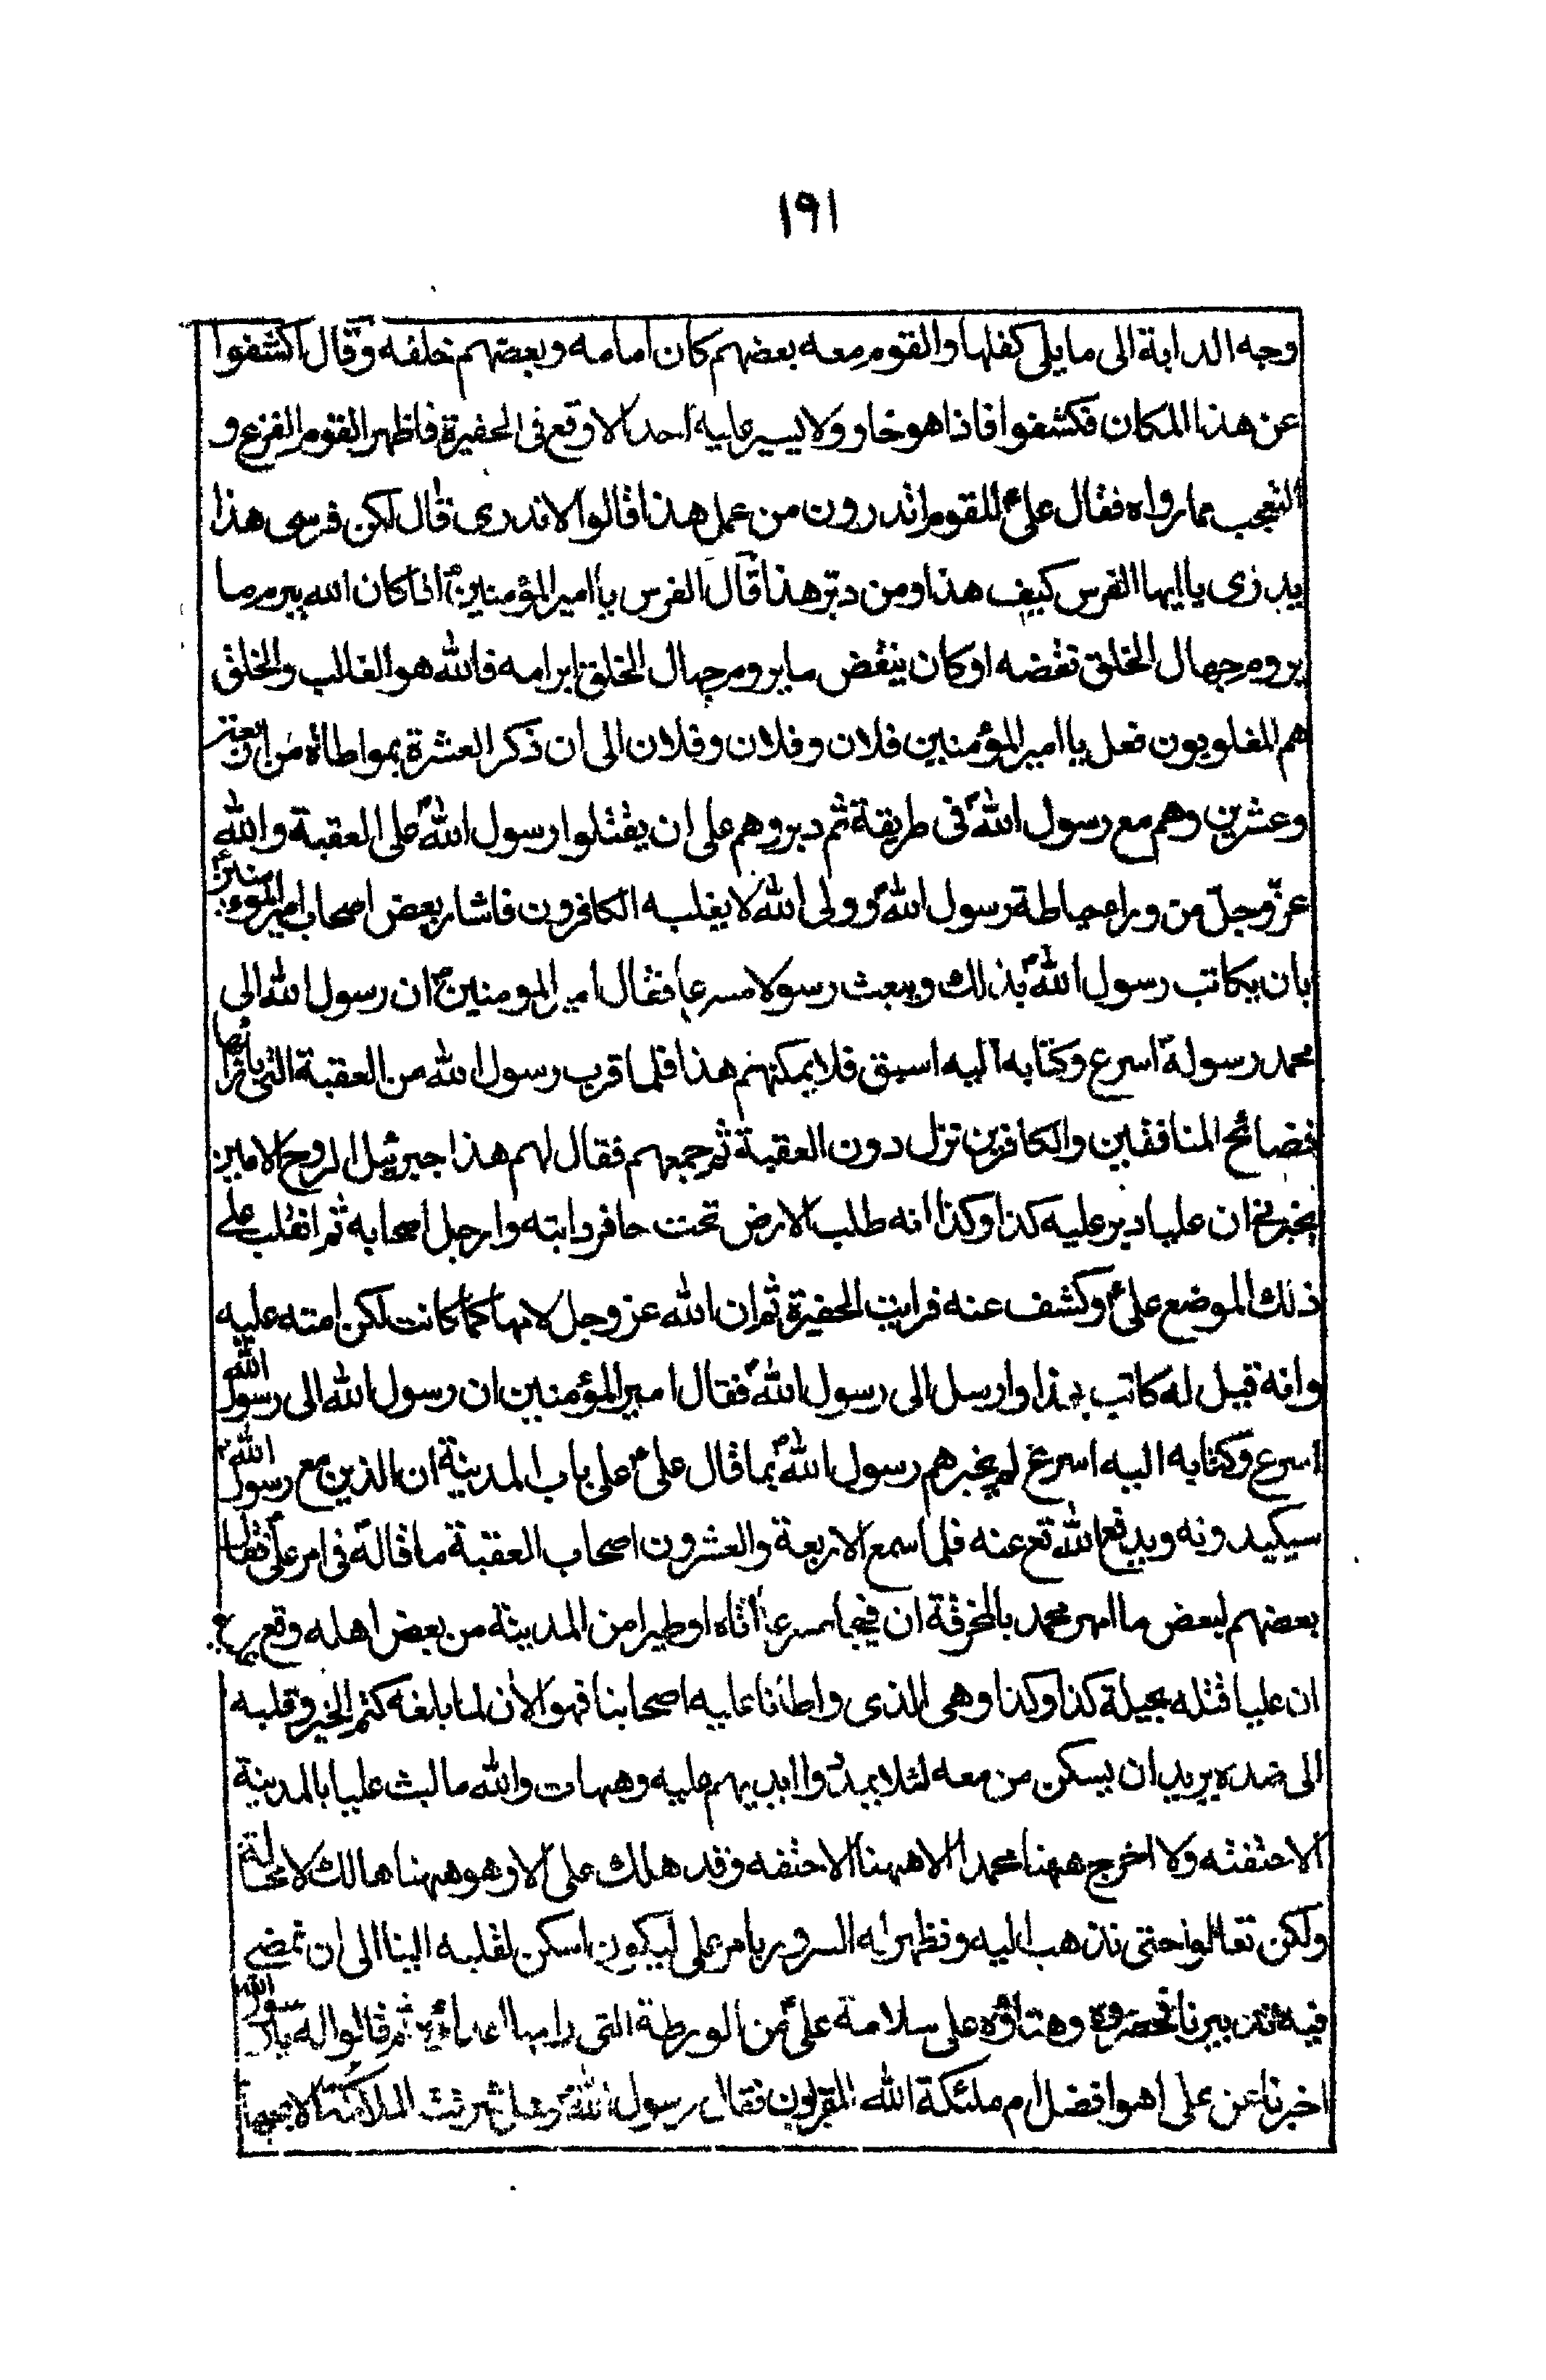 ١٩١
وجه الدابة الى ما يلى كفلها والقوم معه بعضهم كان امامه وبعضهم خلفه وقال اكشفوا
عن هذا المكان فكشفوا فاذا هو خاو ولا يسير عليه احد الا وقع فى الحفيرة فاظهر القوم الفزع و
التعجب مما رواه فقال علىؑ للقوم اتدرون من عمل هذا قالوا لا ندرى قال لكن فرسى هذا
يدرى يا ايها الفرس كيف هذا ومن دبر هذا قال الفرس يا امير المؤمنينؑ اذا كان الله يبرم ما
يروم جهال الخلق نقضه او كان ينقض ما يروم جهال الخلق ابرامه فالله هو الغالب والخلق
هم المغلوبون فعل يا امير المؤمنين فلان وفلان وفلان الى ان ذكر العشرة بمواطاة من اربعة
وعشرين وهم مع رسول اللهؐ فى طريقة ثم دبروهم على ان يقتلوا رسول اللهؐ على العقبة والله
عزّ وجلّ من وراء حياطة رسول اللهؐ وولى الله لا يغلبه الكافرون فاشار بعض اصحاب امير المؤمنينؑ
بان يكاتب رسول اللهؐ بذلك ويبعث رسولا مسرعا فقال امير المومنينؑ ان رسول الله الى
محمد رسوله اسرع وكتابه اليه اسبق فلا يمكنهم هذا فلما قرب رسول الله من العقبة التى بازائها
فضائح المنافقين والكافرين نزل دون العقبة ثم جمعهم فقال لهم هذا جبرئيل الروح الامين
يخبرنى ان عليا دبر عليه كذا وكذا انه طلب الارض تحت حافر دابته وارجل اصحابه ثم انقلب على
ذلك الموضع علىؑ وكشف عنه فرايت الحفيرة ثم ان الله عز وجل لامها كما كانت لكرامته عليه
وانه قيل له كاتب بهذا وارسل الى رسول اللهؐ فقال امير المؤمنين ان رسول الله الى رسول الله
اسرع وكتابه اليه اسرع لم يخبرهم رسول اللهؐ بما قال علىؑ على باب المدينة ان الذين مع رسول اللهؐ
سيكيدونه ويدفع الله تع عنه فلما سمع الاربعة والعشرون اصحاب العقبة ما قاله فى امر علىؑ فقال
بعضهم لبعض ما امهر محمد بالمخرقة ان فيجا مسرعا اتاه او طيرا من المدينة من بعض اهله وقع
ان عليا قتله بحيلة كذا وكذا وهى الذى واطانا عليه اصحابنا فهو الان لما بلغه كتم الخبر وقلبه
الى ضده يريد ان يسكن من معه لئلا يمدوا ايديهم عليه وهيهات والله ما لبث عليا بالمدينة
الا حتفته ولا اخرج ههنا محمدا الا ههنا الا حتفه وقد هلك على الا وهو ههنا هالك لا محالة
ولكن تعالوا حتى نذهب اليه ونظهر له السرور بامر على ليكون اسكن لقلبه الينا الى ان نمضى
فيه تدبيرنا فحضروه وهناؤه على سلامة علىؑ من الورطة التى رامها اعداؤه ثم قالوا له يا رسول الله
اخبرنا عن على اهو افضل ام ملئكة الله المقربون فقال رسول اللهؐ وهل شرفت الملائكة الا بحبها